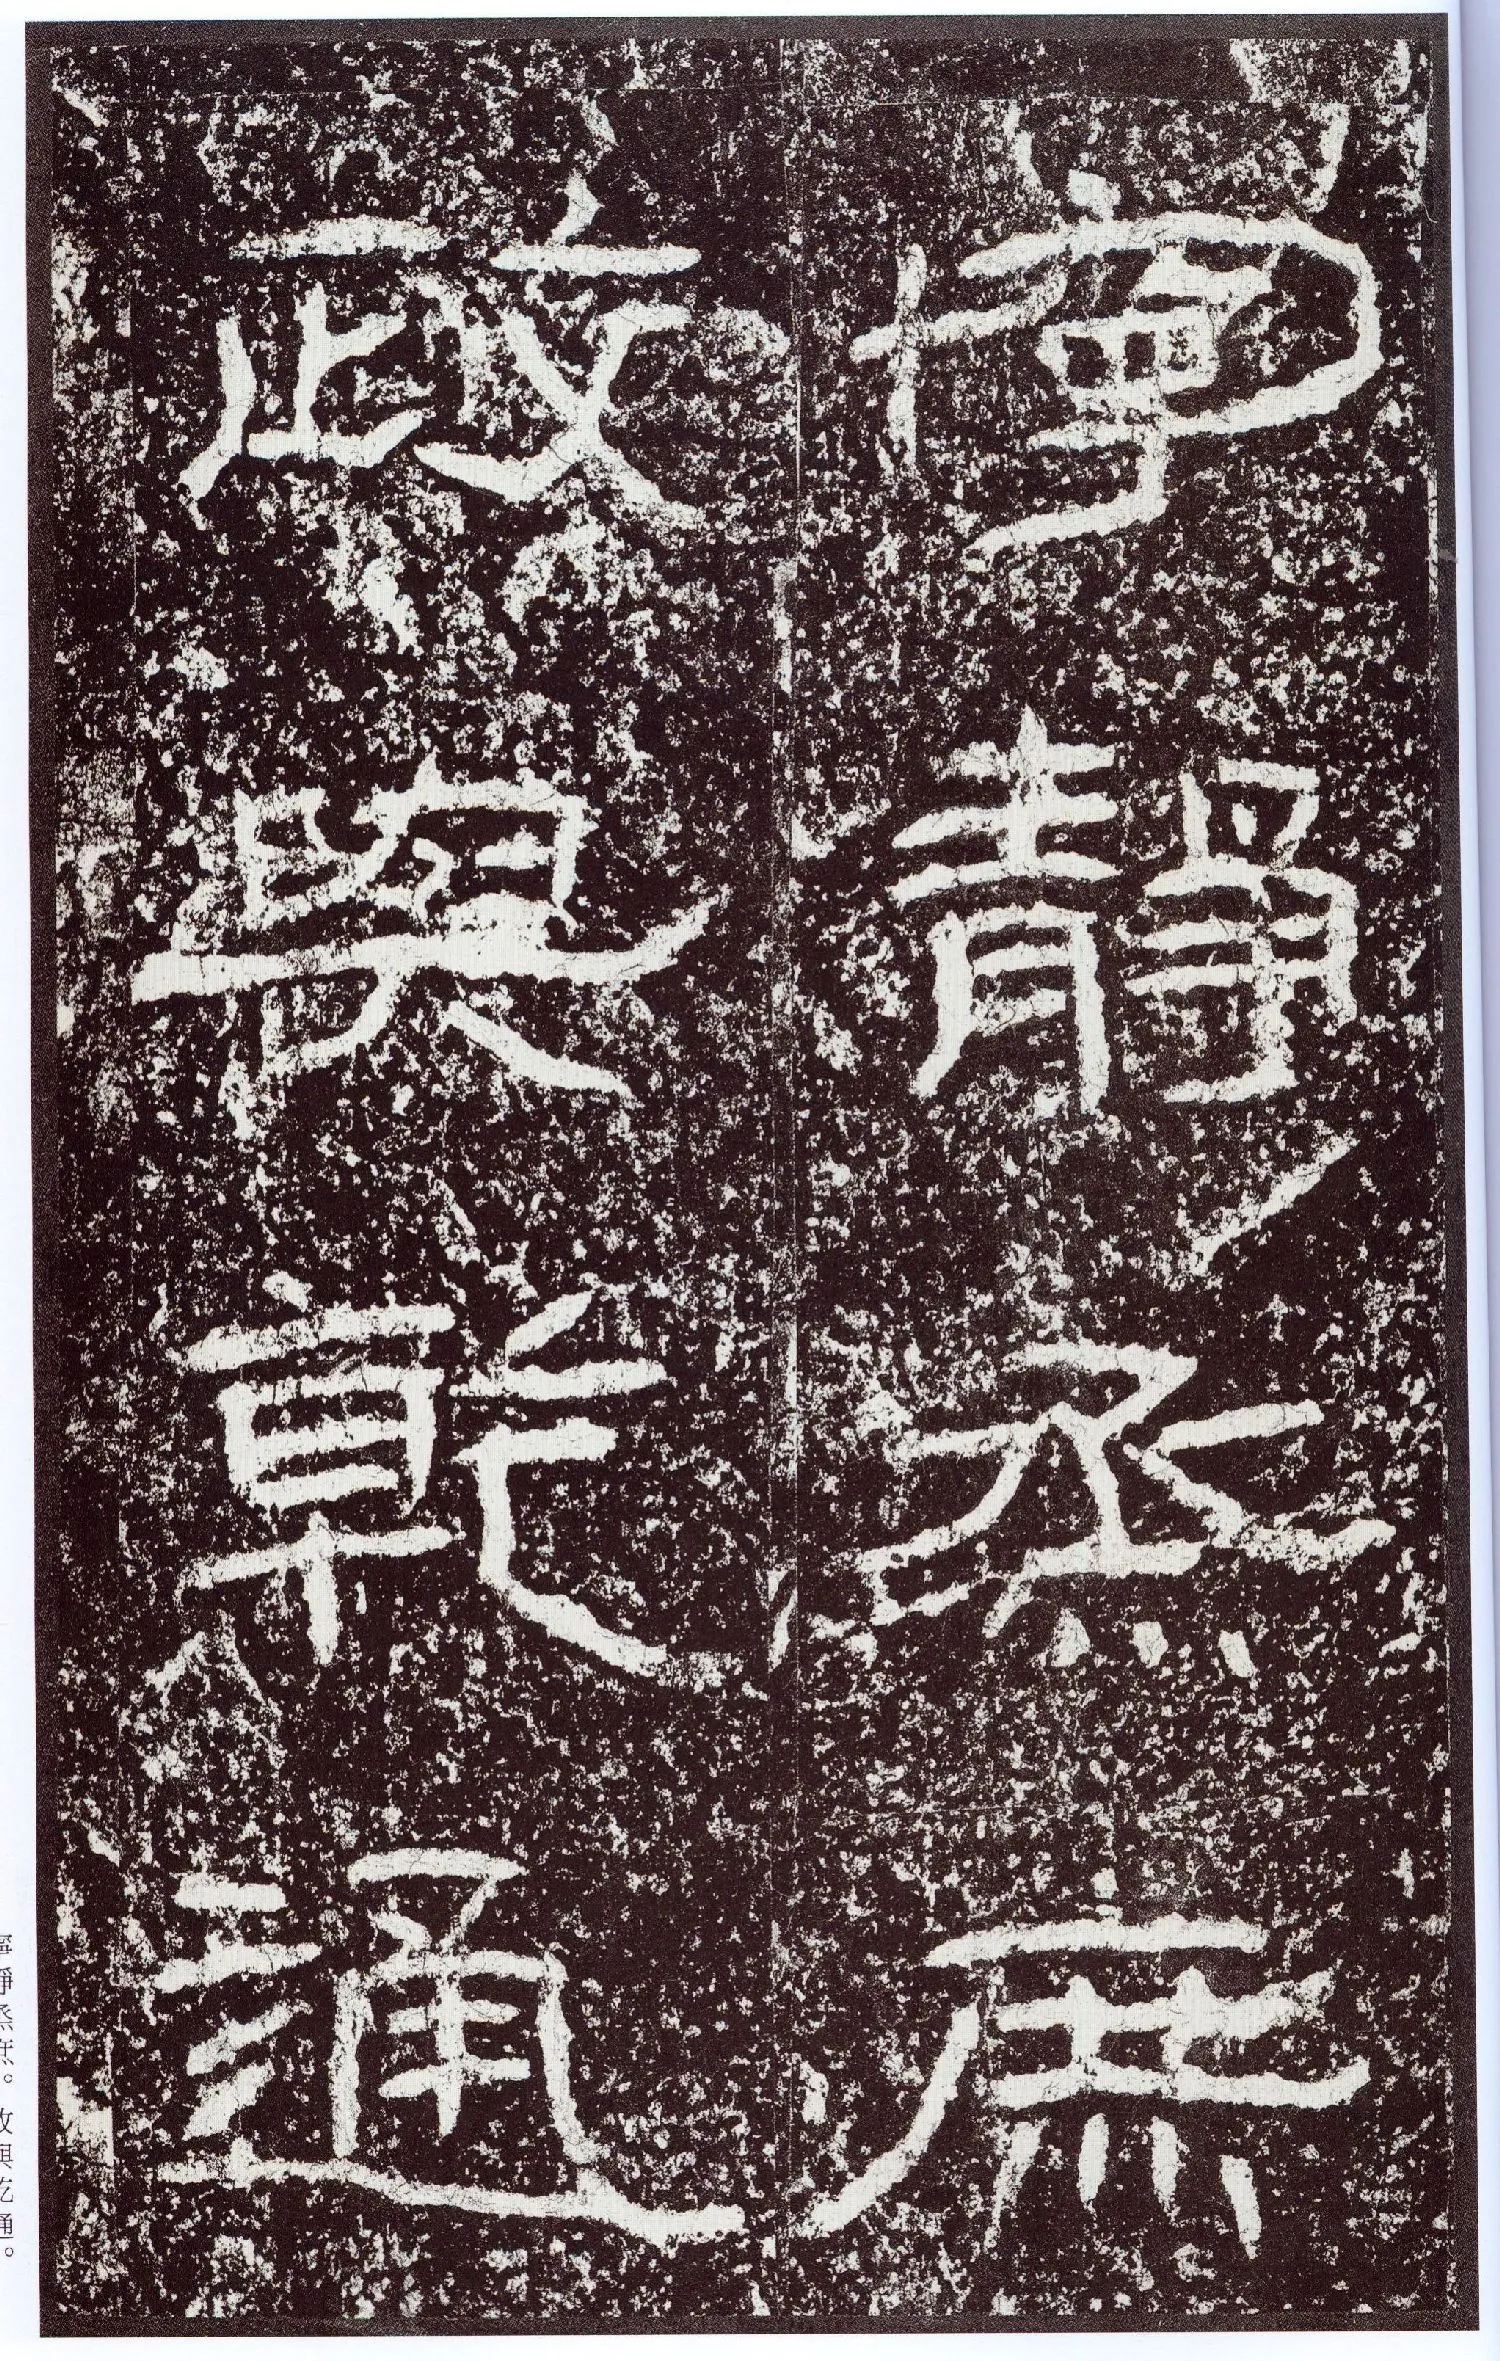 寧靜烝庶
政與乾通
寧靜烝庶。政與乾通。